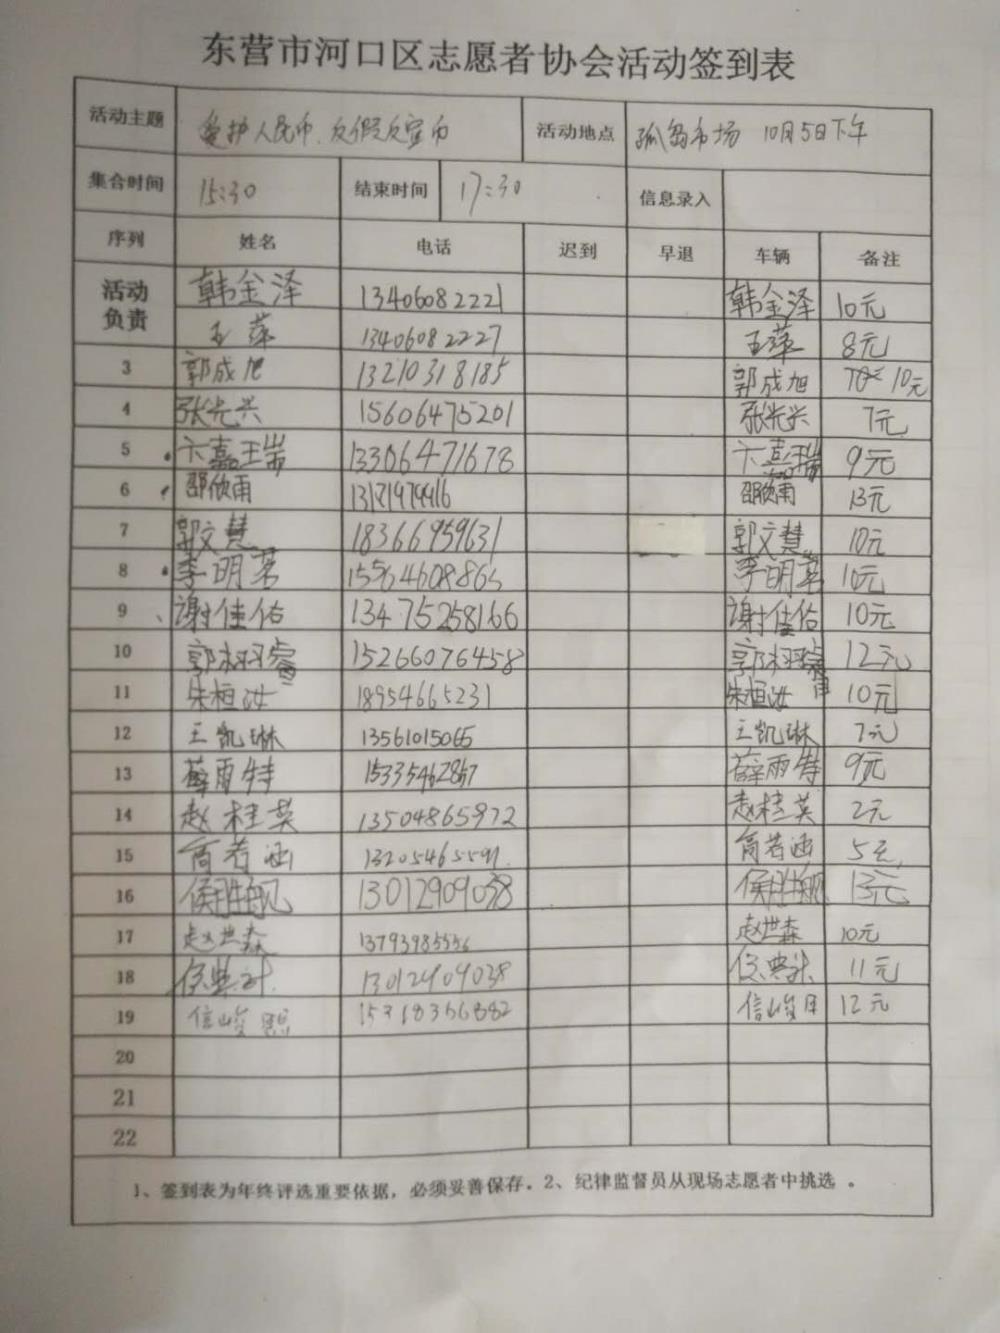 东营市河口区志愿者协会活动签到表
活动主题 爱护人民币、反假反宣币 活动地点 孤岛市场 10月5日下午
集合时间 15:30 结束时间 17:30 信息录入
序列 姓名 电话 迟到 早退 车辆 备注
活动负责 韩金泽 13406082221 韩金泽 10元
王萍 13406082227 王萍 8元
3 郭成旭 13210318185 郭成旭 10元
4 张光兴 15606475201 张光兴 7元
5 卞嘉瑞 13306471678 卞嘉瑞 9元
6 邵欣雨 邵欣雨 13元
7 郭文慧 18366959631 郭文慧 10元
8 李明茗 李明茗 10元
9 谢佳佑 13475258166 谢佳佑 10元
10 15266076458 12元
11 朱桓汝 18954665231 朱桓汝 10元
12 王凯琳 13561015065 王凯琳 7元
13 薛雨特 15335462867 薛雨特 9元
14 赵桂英 13504865972 赵桂英 2元
15 商若涵 13205465591 商若涵 5元
16 侯胜凯 13012909038 13元
17 赵世森 13793985556 赵世森 10元
18 13012909038 11元
19 信峻熙 15318356882 12元
20
21
22
1、签到表为年终评选重要依据，必须妥善保存。2、纪律监督员从现场志愿者中挑选 。